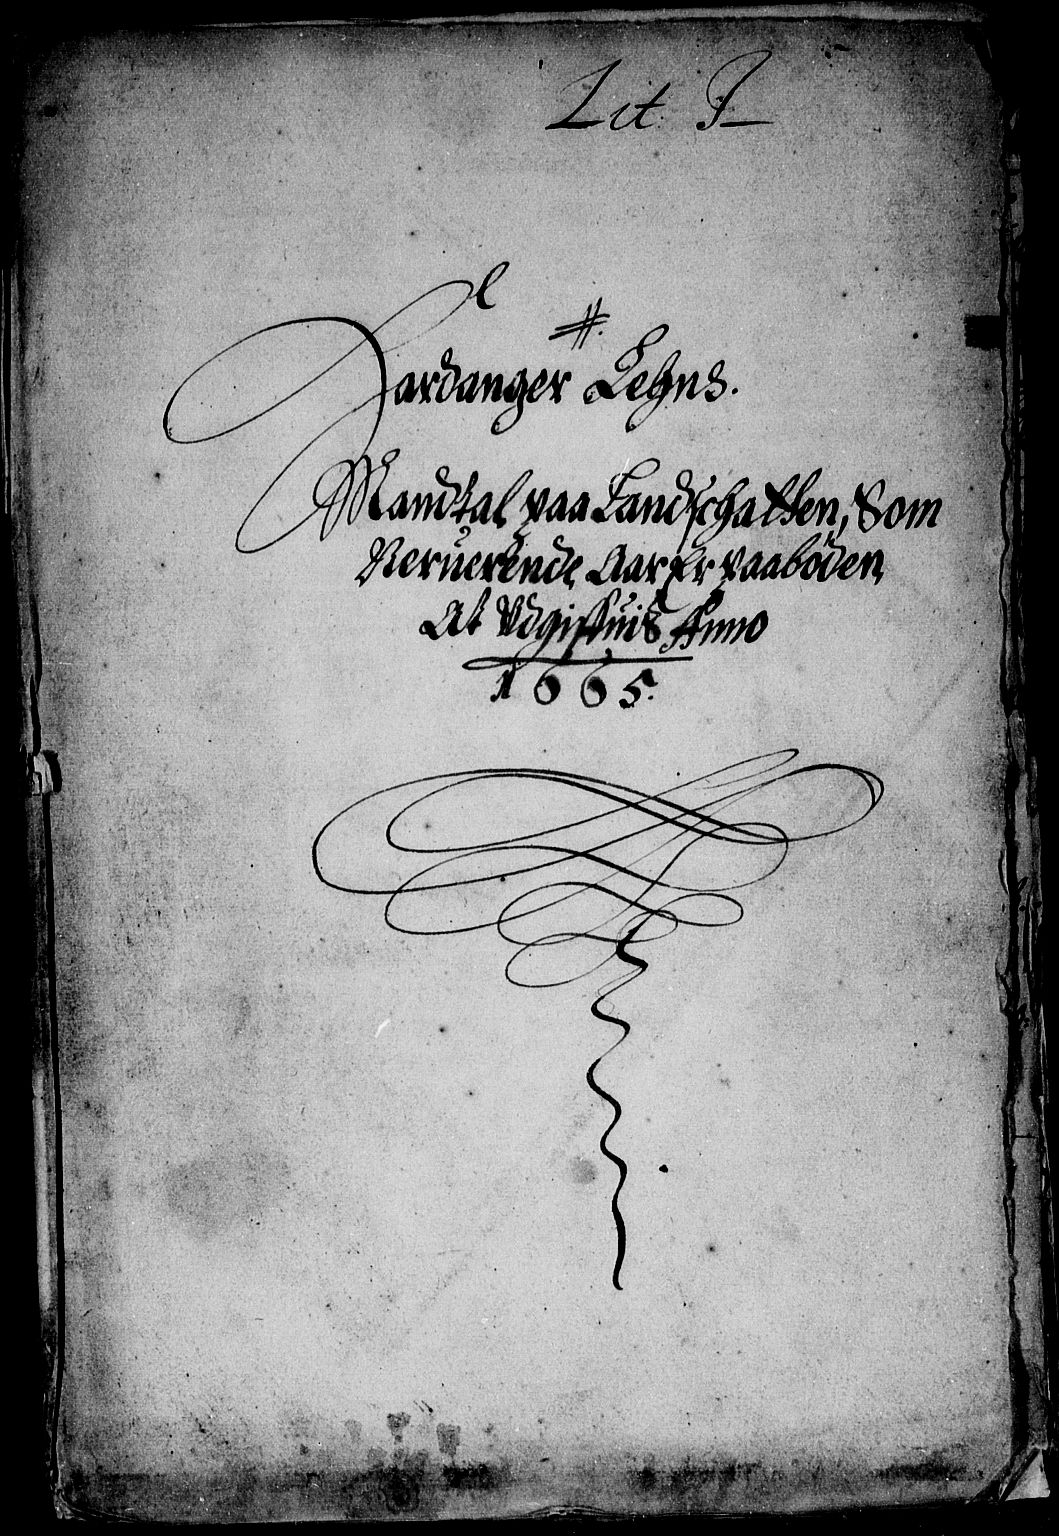 Lit J
Hardanger Lehns.
Mandtal paa Landschatten, Som
Neruerende Aar Er paaböden
At Udgifftuis Anno
1665.